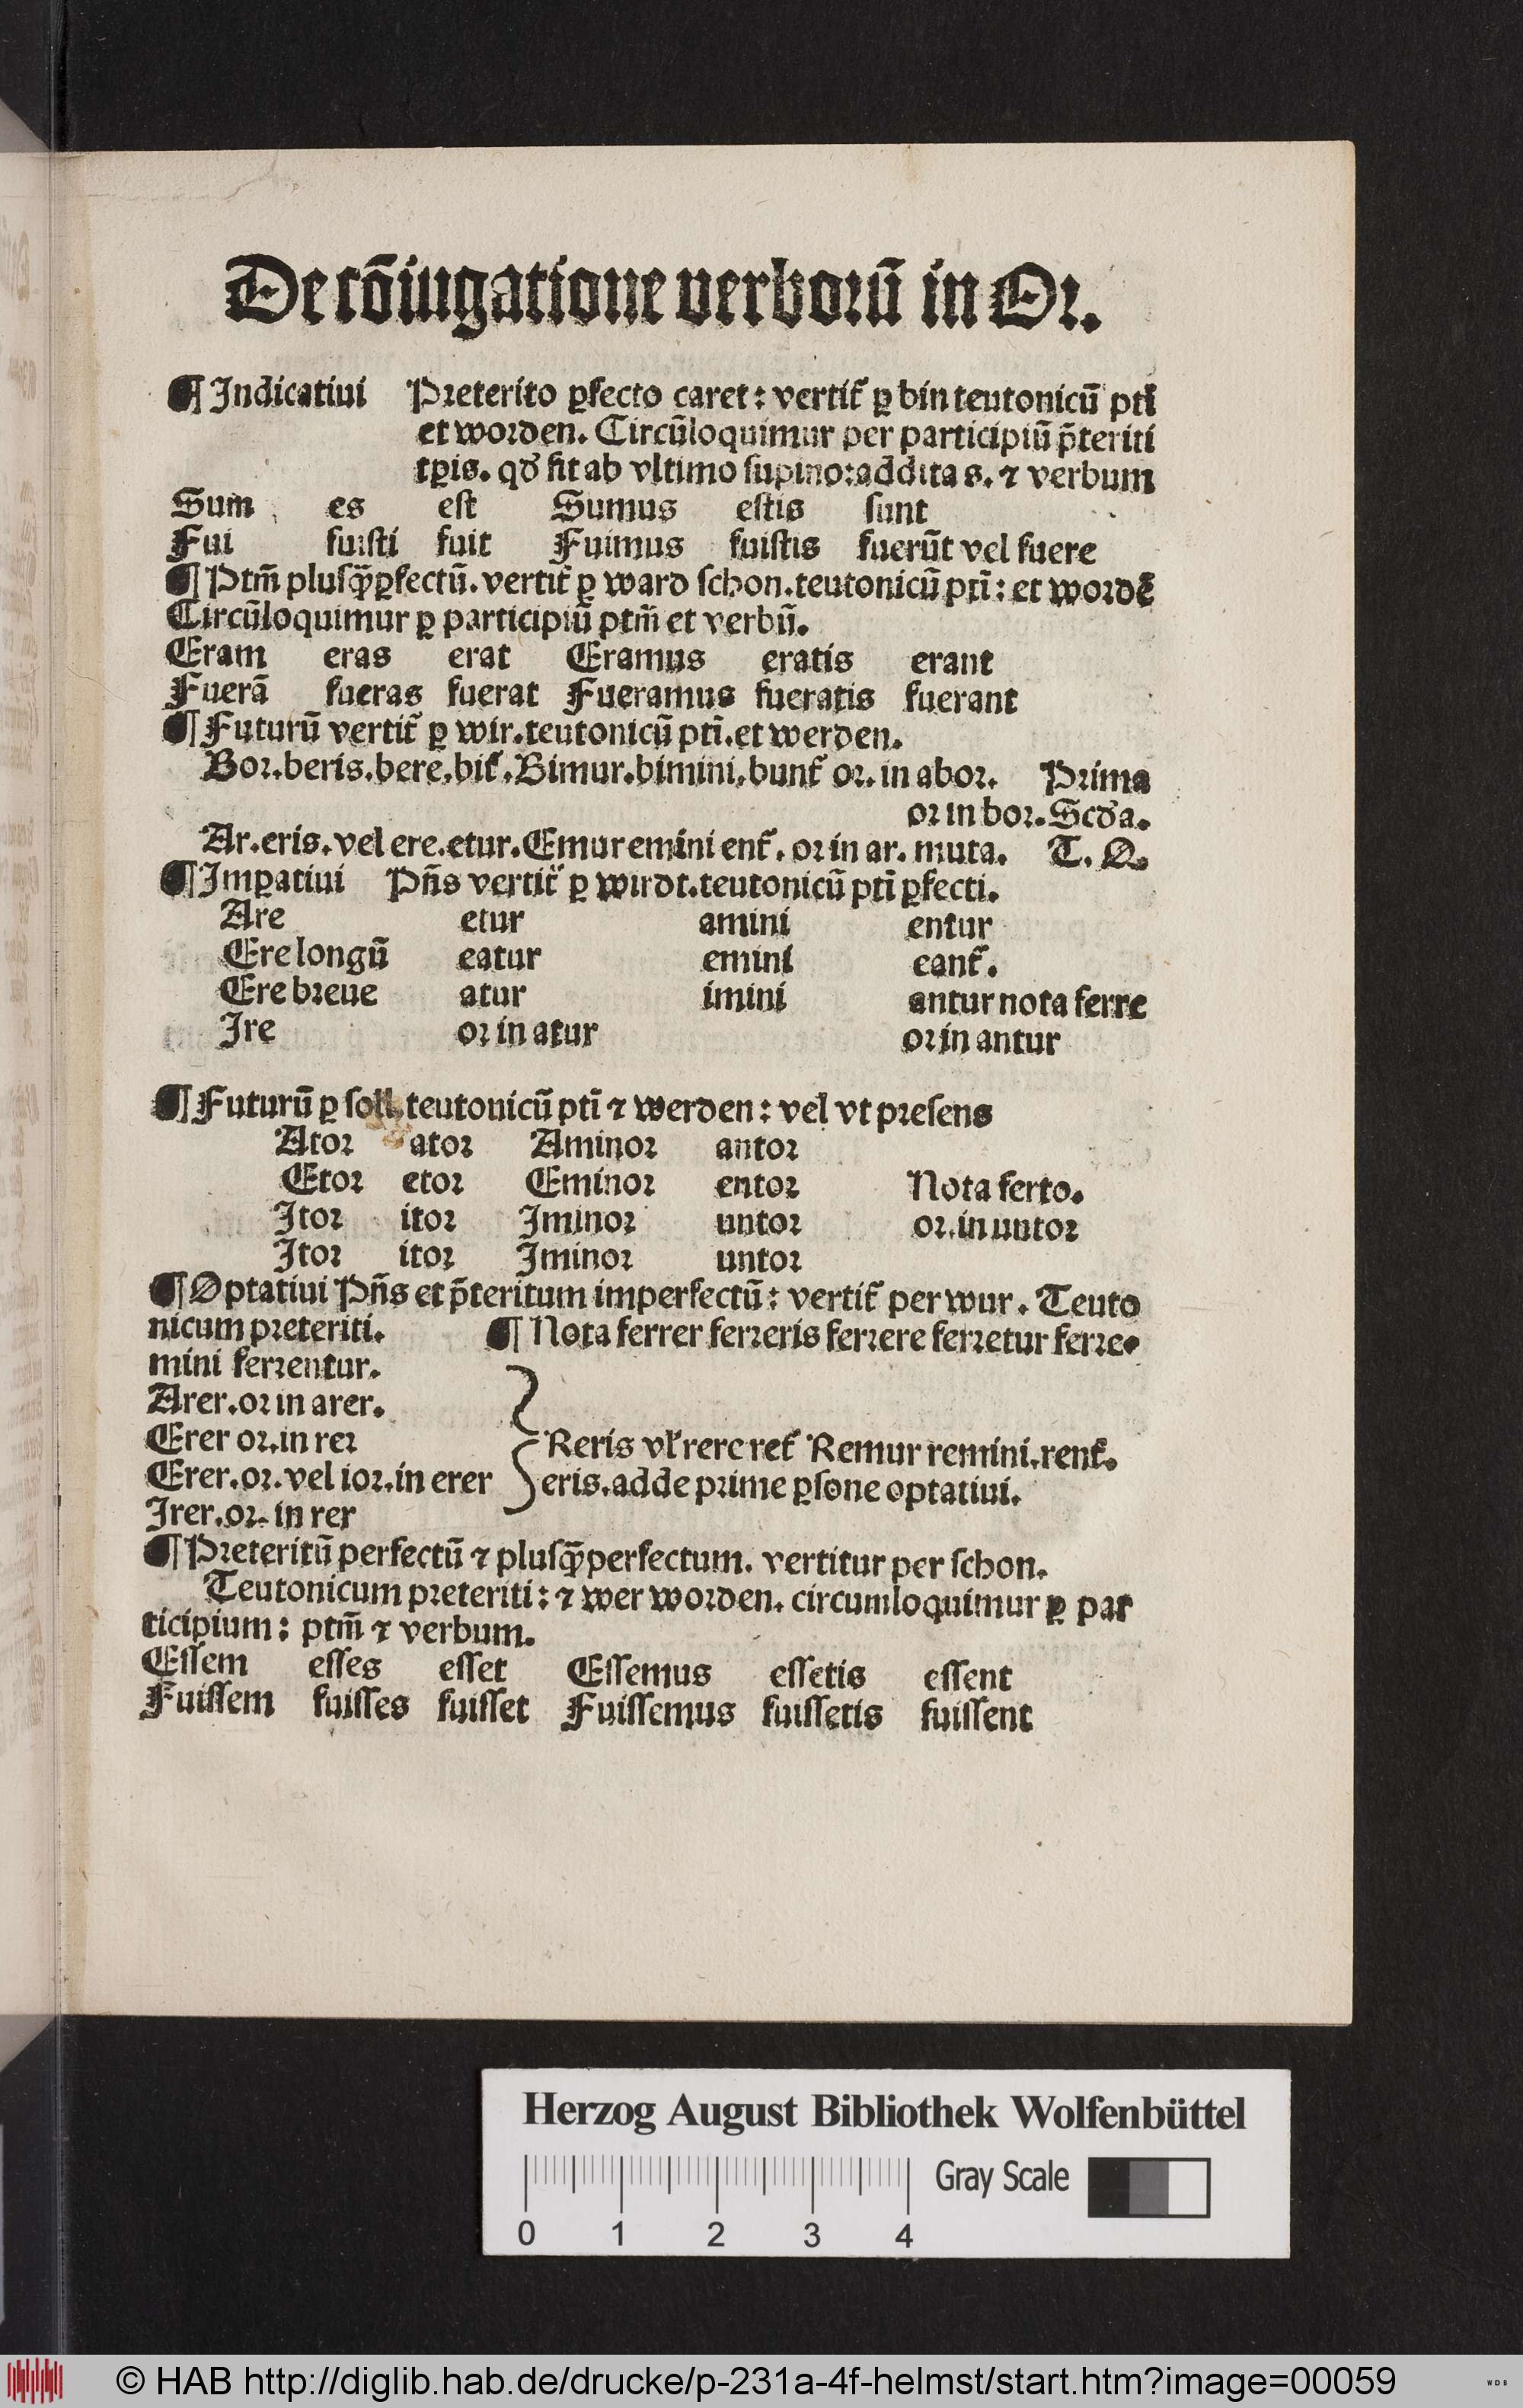 De cōiugatione verborū in Or.
¶ Indicatiui Preterito ꝑfecto caret: vertit᷑ ꝑ bin teutonicū pt̄i
et worden. Circūloquimur per participiū p̄teriti
tꝑis. qđ fit ab vltimo supino: addita s. ⁊ verbum
Sum es est Sumus estis sunt
Fui fuisti fuit Fuimus fuistis fuerūt vel fuere
¶ Ptm̄ plusq̄ꝑfectū. vertit᷑ ꝑ ward schon. teutonicū ptī: et wordē
Circūloquimur ꝑ participiū ptm̄ et verbū.
Eram eras erat Eramus eratis erant
Fuerā fueras fuerat Fueramus fueratis fuerant
¶ Futurū vertit᷑ ꝑ wir. teutonicū ptī. et werden.
Bor. beris. bere. bit᷑. Bimur. bimini. bunt᷑ or. in abor. Prima
or in bor. Scđa.
Ar. eris. vel ere. etur. Emur emini ent᷑. or in ar. muta. T. Q.
¶ Imꝑatiui Pn̄s vertit᷑ ꝑ wirdt. teutonicū ptī ꝑfecti.
Are etur amini entur
Ere longū eatur emini eant᷑.
Ere breue atur imini antur nota ferre
Ire or in atur or in antur
¶ Futurū ꝑ soll. teutonicū ptī ⁊ werden: vel vt presens
Ator ator Aminor antor
Etor etor Eminor entor Nota ferto.
Itor itor Iminor untor or. in untor
Itor itor Iminor untor
¶ Optatiui Pn̄s et p̄teritum imperfectū: vertit᷑ per wur. Teuto
nicum preteriti. ¶ Nota ferrer ferreris ferrere ferretur ferre⸗
mini ferrentur.
Arer. or in arer.
Erer or. in rer Reris vł rere ret᷑ Remur remini. rent᷑.
Erer. or. vel ior. in erer eris. adde prime ꝑsone optatiui.
Irer. or. in rer
¶ Preteritū perfectū ⁊ plusq̄perfectum. vertitur per schon.
Teutonicum preteriti: ⁊ wer worden. circumloquimur ꝑ par
ticipium: ptm̄ ⁊ verbum.
Essem esses esset Essemus essetis essent
Fuissem fuisses fuisset Fuissemus fuissetis fuissent
Herzog August Bibliothek Wolfenbüttel
Gray Scale
0 1 2 3 4
© HAB http://diglib.hab.de/drucke/p-231a-4f-helmst/start.htm?image=00059
WDB